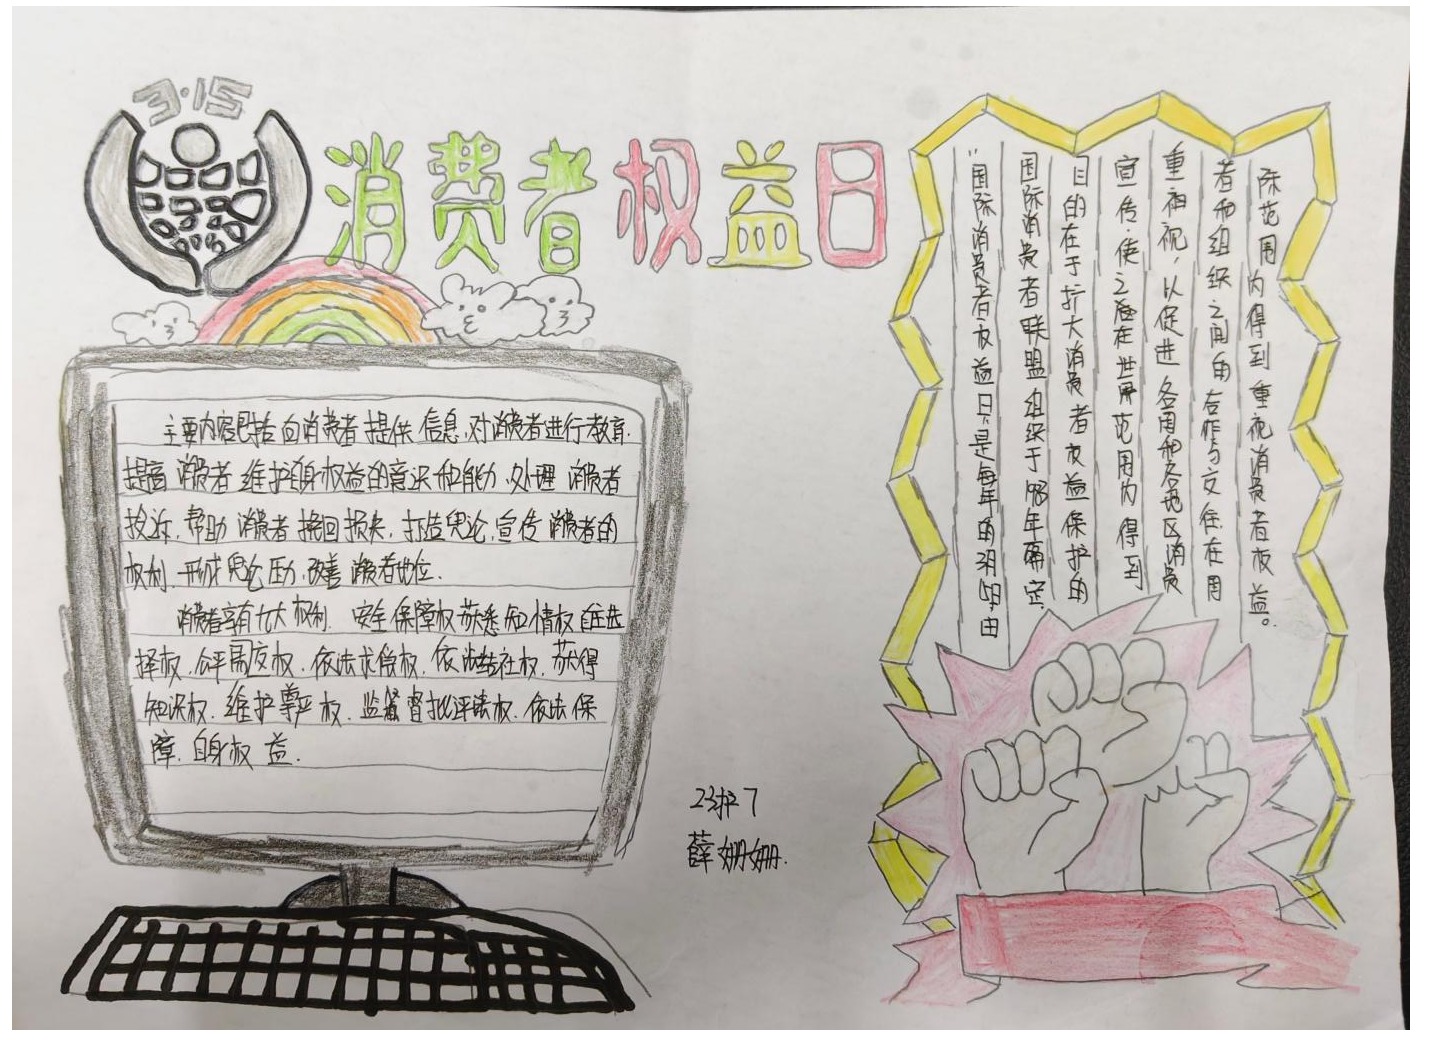 3·15
消费者权益日
主要内容包括向消费者提供信息,对消费者进行教育.
提高消费者维护自身权益的意识和能力、处理消费者
投诉,帮助消费者挽回损失,打造舆论,宣传消费者的
权利.形成舆论压力、改善消费者地位.
消费者享有九大权利.安全保障权获悉知情权自主选
择权.公平交易权.依法求偿权.依法结社权.获得
知识权.维护尊严权.监督批评权.依法保
障.自身权益.
"国际消费者权益日"是每年的3月15日,由
国际消费者联盟组织于1983年确定,
目的在于扩大消费者权益保护的
宣传.使之在世界范围内得到
重视,以促进各国和各地区消费
者和组织之间的合作与交往.在国
际范围内得到重视消费者权益。
23护7
薛姗姗.